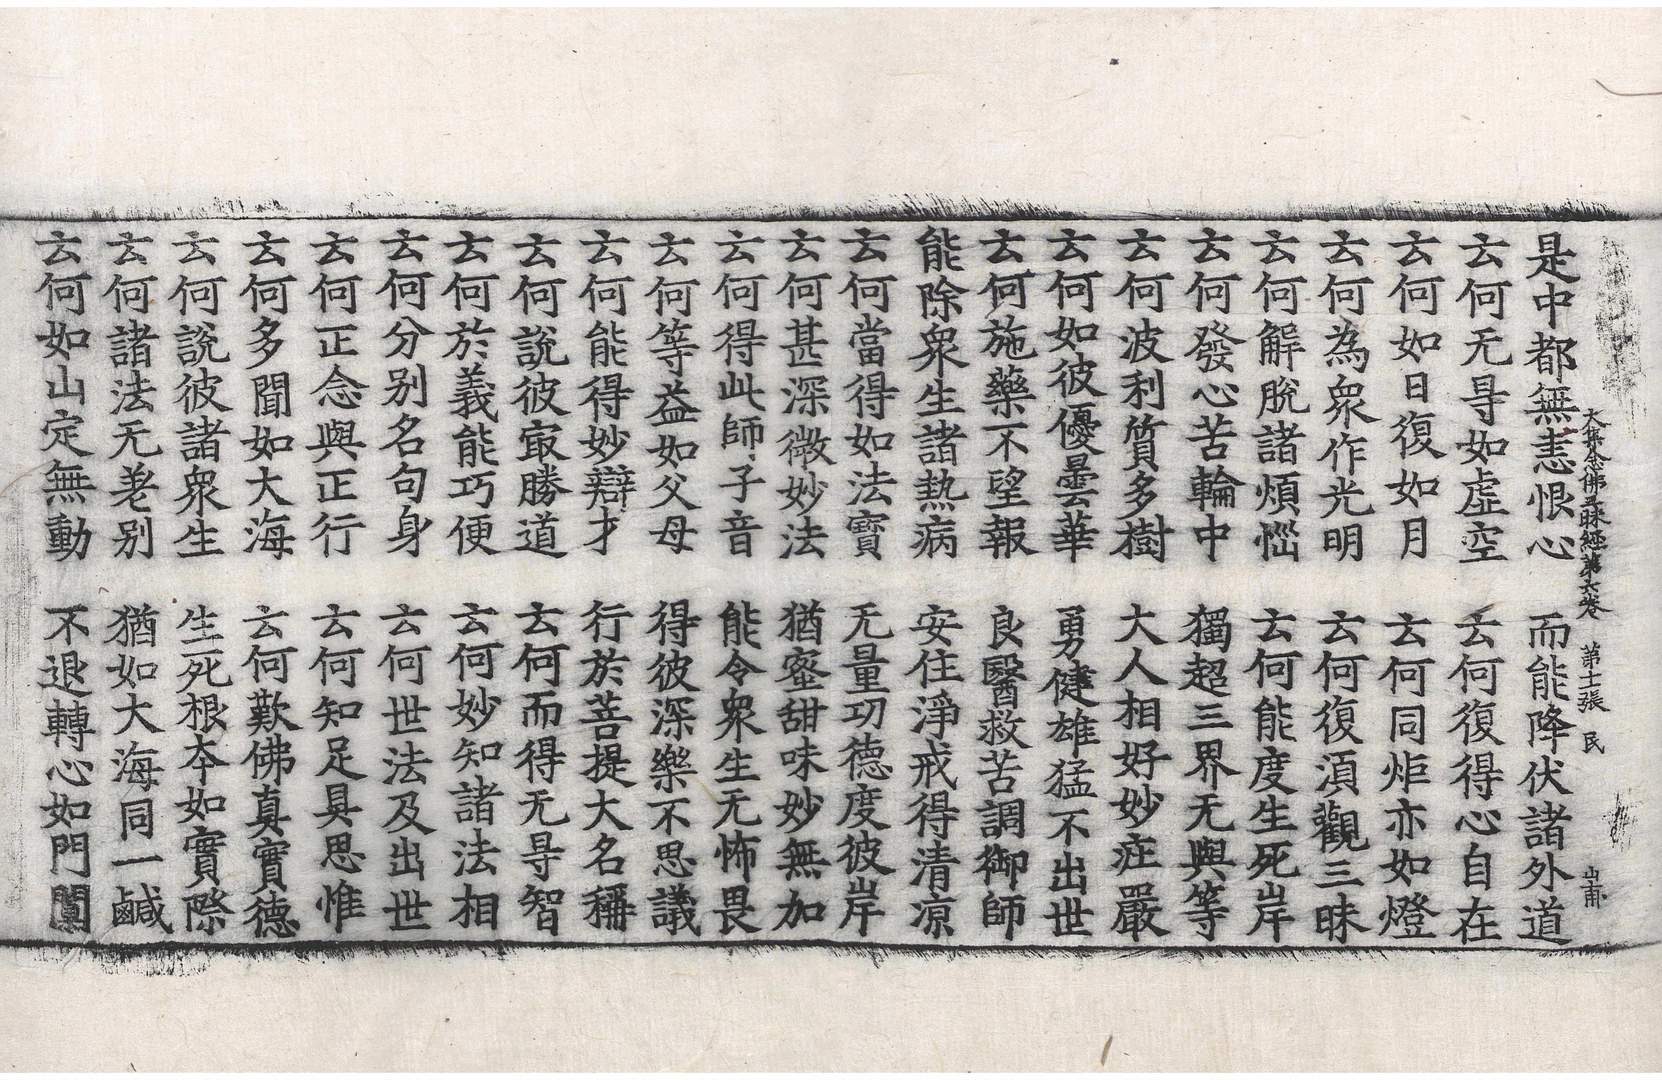 大集念佛三昧經第六卷 第十張 民
是中都無恚恨心 而能降伏諸外道
云何无㝵如虛空 云何復得心自在
云何如日復如月 云何同炬亦如燈
云何為衆作光明 云何復湏觀三昧
云何解脫諸煩惱 云何能度生死岸
云何發心苦輪中 獨超三界无與等
云何波利質多樹 大人相好妙莊嚴
云何如彼優曇華 勇健雄猛不出世
云何施藥不望報 良醫救苦調御師
能除衆生諸熱病 安住淨戒得清凉
云何當得如法寶 无量功德度彼岸
云何甚深微妙法 猶蜜甜味妙無加
云何得此師子音 能令衆生无怖畏
云何等益如父母 得彼深樂不思議
云何能得妙辯才 行於菩提大名稱
云何說彼㝡勝道 云何而得无㝵智
云何於義能巧便 云何妙知諸法相
云何分别名句身 云何世法及出世
云何正念與正行 云何知足具思惟
云何多聞如大海 云何歎佛真實德
云何說彼諸衆生 生死根本如實際
云何諸法无差别 猶如大海同一鹹
云何如山定無動 不退轉心如門闑